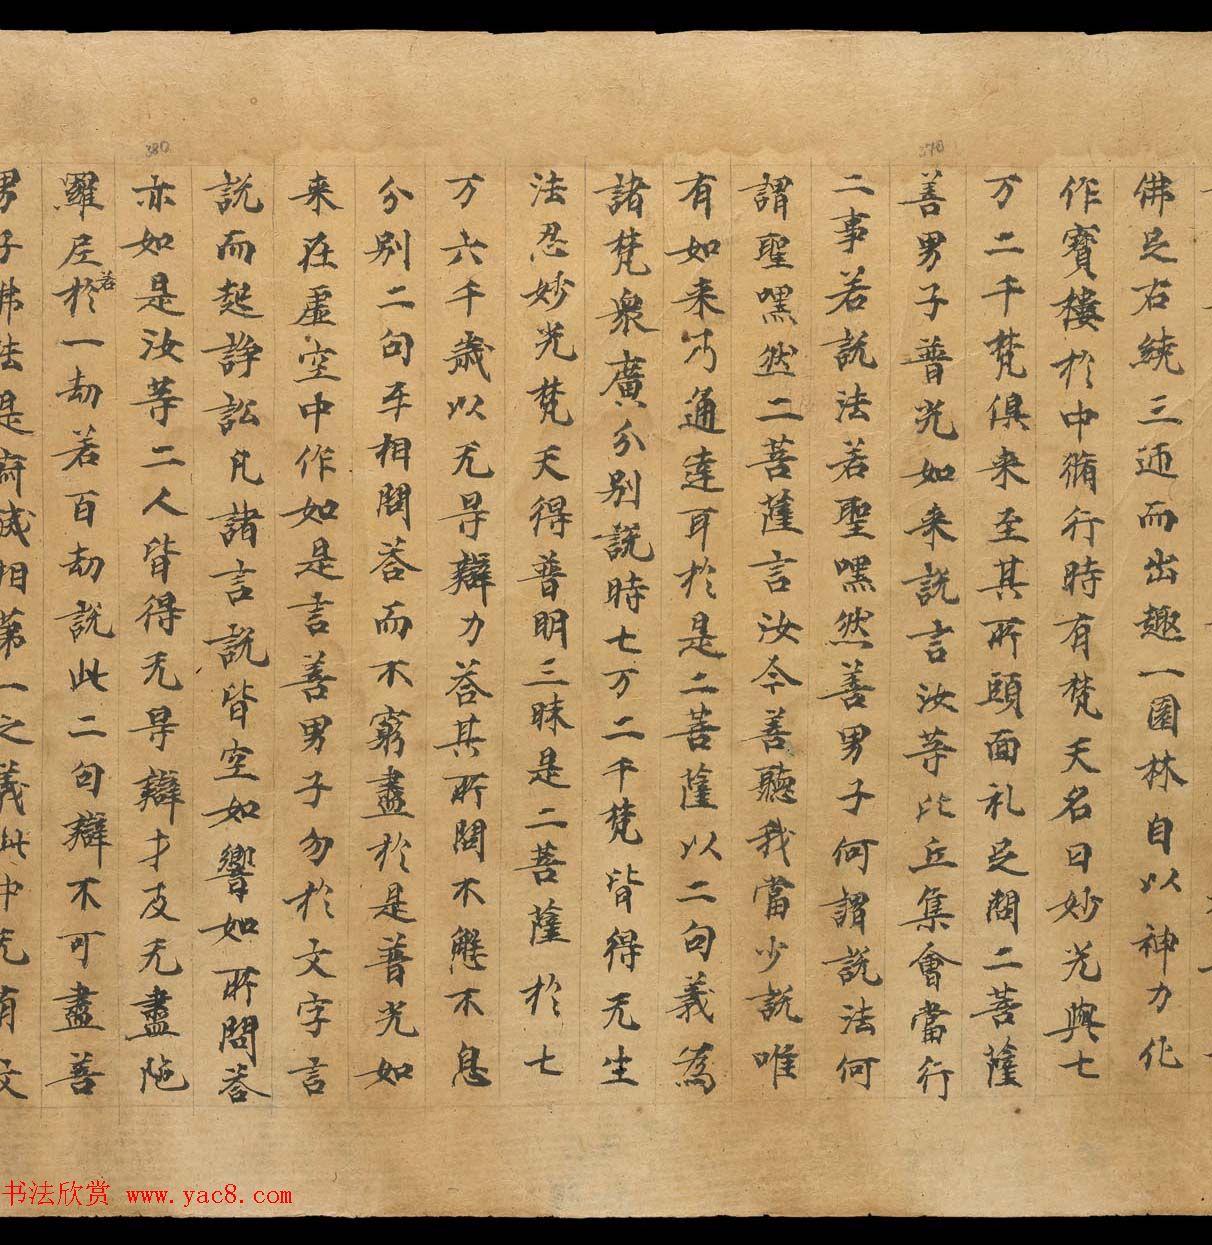 佛足右繞三迊而出趣一園林自以神力化
作寶樓於中脩行時有梵天名曰妙光與七
万二千梵俱来至其所頭面礼足問二菩薩
善男子普光如来説言汝等比丘集會當行
二事若説法若聖嘿然善男子何謂説法何
謂聖嘿然二菩薩言汝今善聽我當少説唯
有如来乃通達耳於是二菩薩以二句義為
諸梵衆廣分别説時七万二千梵皆得无生
法忍妙光梵天得普明三昧是二菩薩於七
万六千歲以无㝵辯力荅其所問不懈不息
分别二句互相問荅而不窮盡於是普光如
来在虛空中作如是言善男子勿於文字言
説而起諍訟凡諸言説皆空如響如所問荅
亦如是汝等二人皆得无㝵辯才及无盡陁
羅尼若於一劫若百劫説此二句辯不可盡善
男子佛法是寂滅相第一之義此中无有文
380
370
书法欣赏 www.yac8.com